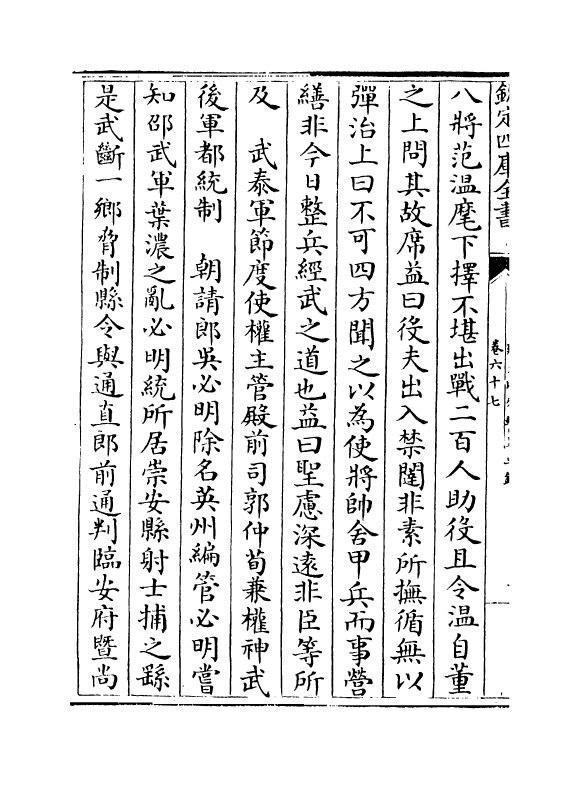 欽定四庫全書
卷六十七
八將范温麾下擇不堪出戰二百人助役且令温自董
之上問其故席益曰役夫出入禁闥非素所撫循無以
彈治上曰不可四方聞之以為使將帥舍甲兵而事營
繕非今日整兵經武之道也益曰聖慮深遠非臣等所
及　武泰軍節度使權主管殿前司郭仲荀兼權神武
後軍都統制　朝請郎吳必明除名英州編管必明嘗
知邵武軍葉濃之亂必明統所居崇安縣射士捕之繇
是武斷一鄉脅制縣令與通直郎前通判臨安府暨尚